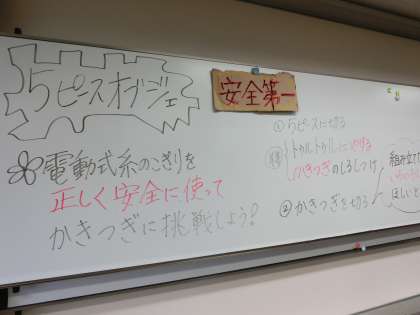 5ピースオブジェ
安全第一
電動式糸のこぎりを
正しく安全に使って
かきつぎに挑戦しよう?
① 5ピースに切る
かきつぎのしるしつけ
② かきつぎを切る
組み立て
ほしいと